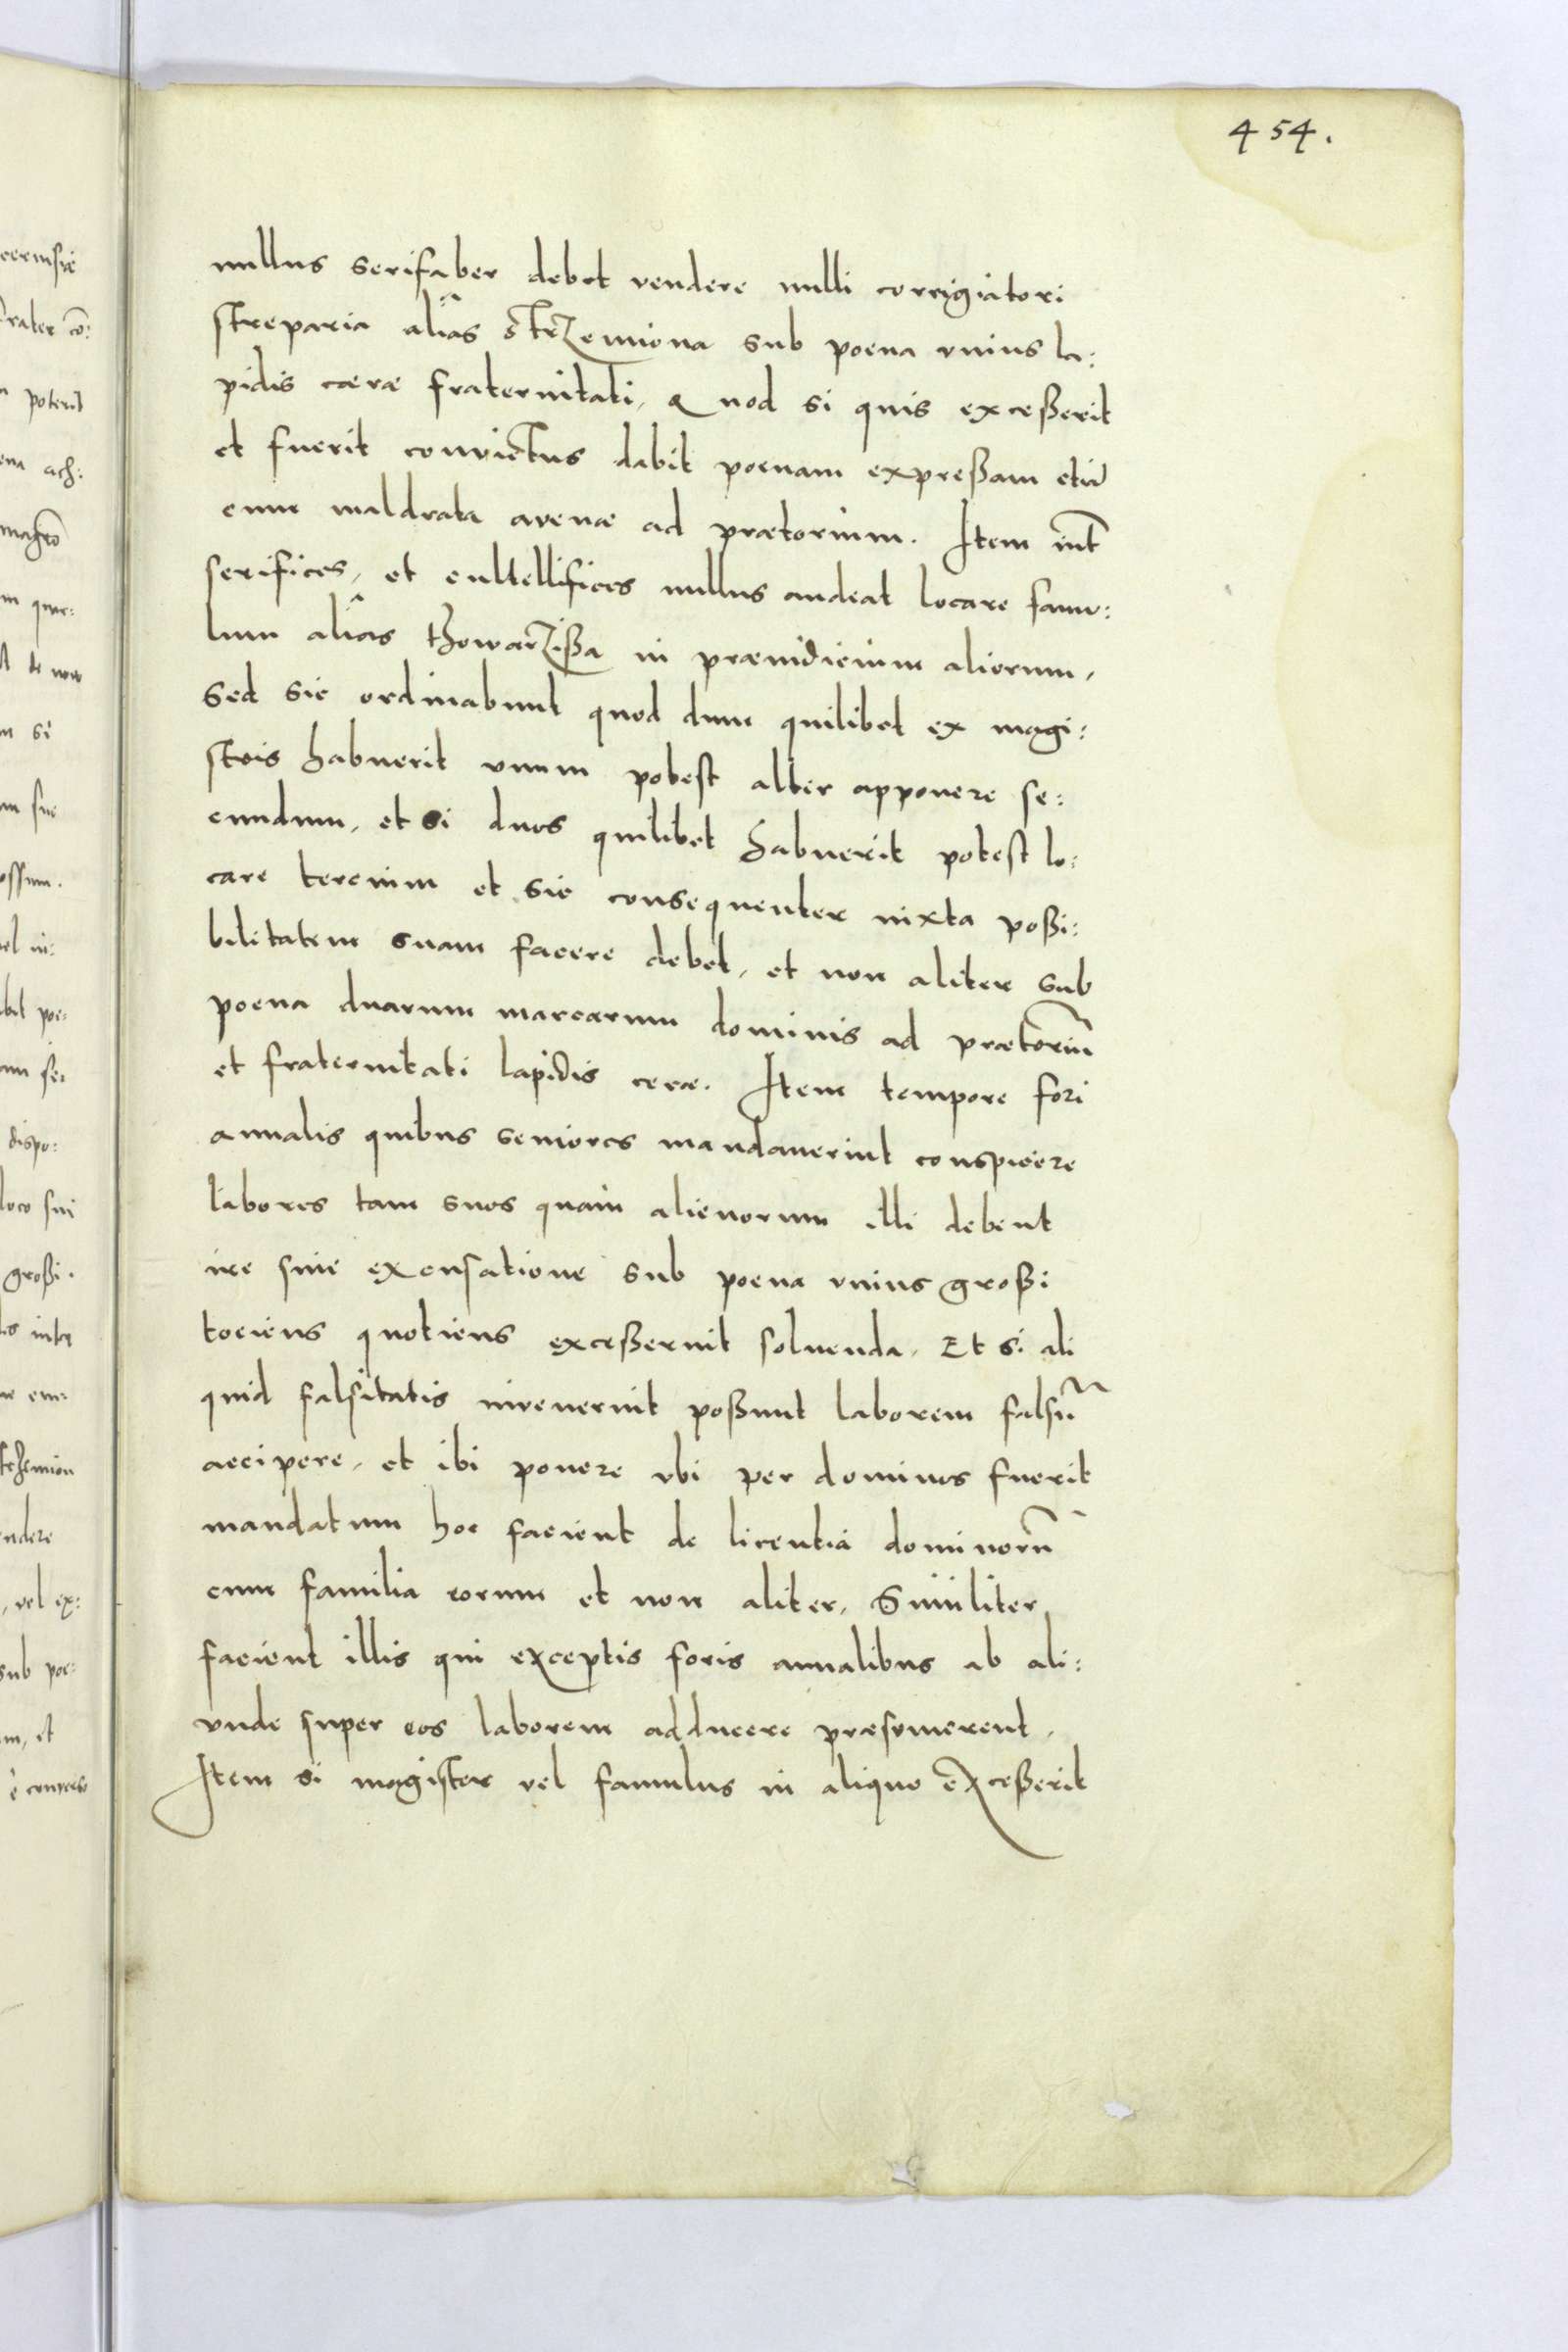 454.
nullus serifaber debet vendere nulli corrigiatori
streparia aliâs strzemiona sub poena vnius la:
pidis cæræ fraternitati, Quod si quis exceßerit
et fuerit convictus dabit poenam expreßam etiā
cum maldrata avenæ ad prætorium. Item int̄
serifices, et cultellifices nullus audeat locare famu:
lum aliâs thowarzißa in præiudicium aliorum,
sed sic ordinabunt quod dum quilibet ex magi:
stris habuerit vnum potest alter apponere se:
cundum, et si duos quilibet habuerit potest lo:
care tercium et sic consequenter iuxta poßi:
bilitatem suam facere debet, et non aliter sub
poena duarum marcarum dominis ad prætoriū
et fraternitati lapidis ceræ. Item tempore fori
annalis quibus seniores mandaverint conspicere
labores tam suos quam alienorum illi debent
ire sine excusatione sub poena vnius großi
tociens quotiens exceßerint soluenda, Et si ali
quid falsitatis invenerint poßunt laborem falsū
accipere, et ibi ponere vbi per dominos fuerit
mandatum hoc facient de licentia dominorū
cum familia eorum et non aliter, Similiter
facient illis qui exceptis foris annalibus ab ali:
vnde super eos laborem adducere præsumerent,
Item si magister vel famulus in aliquo exceßerit